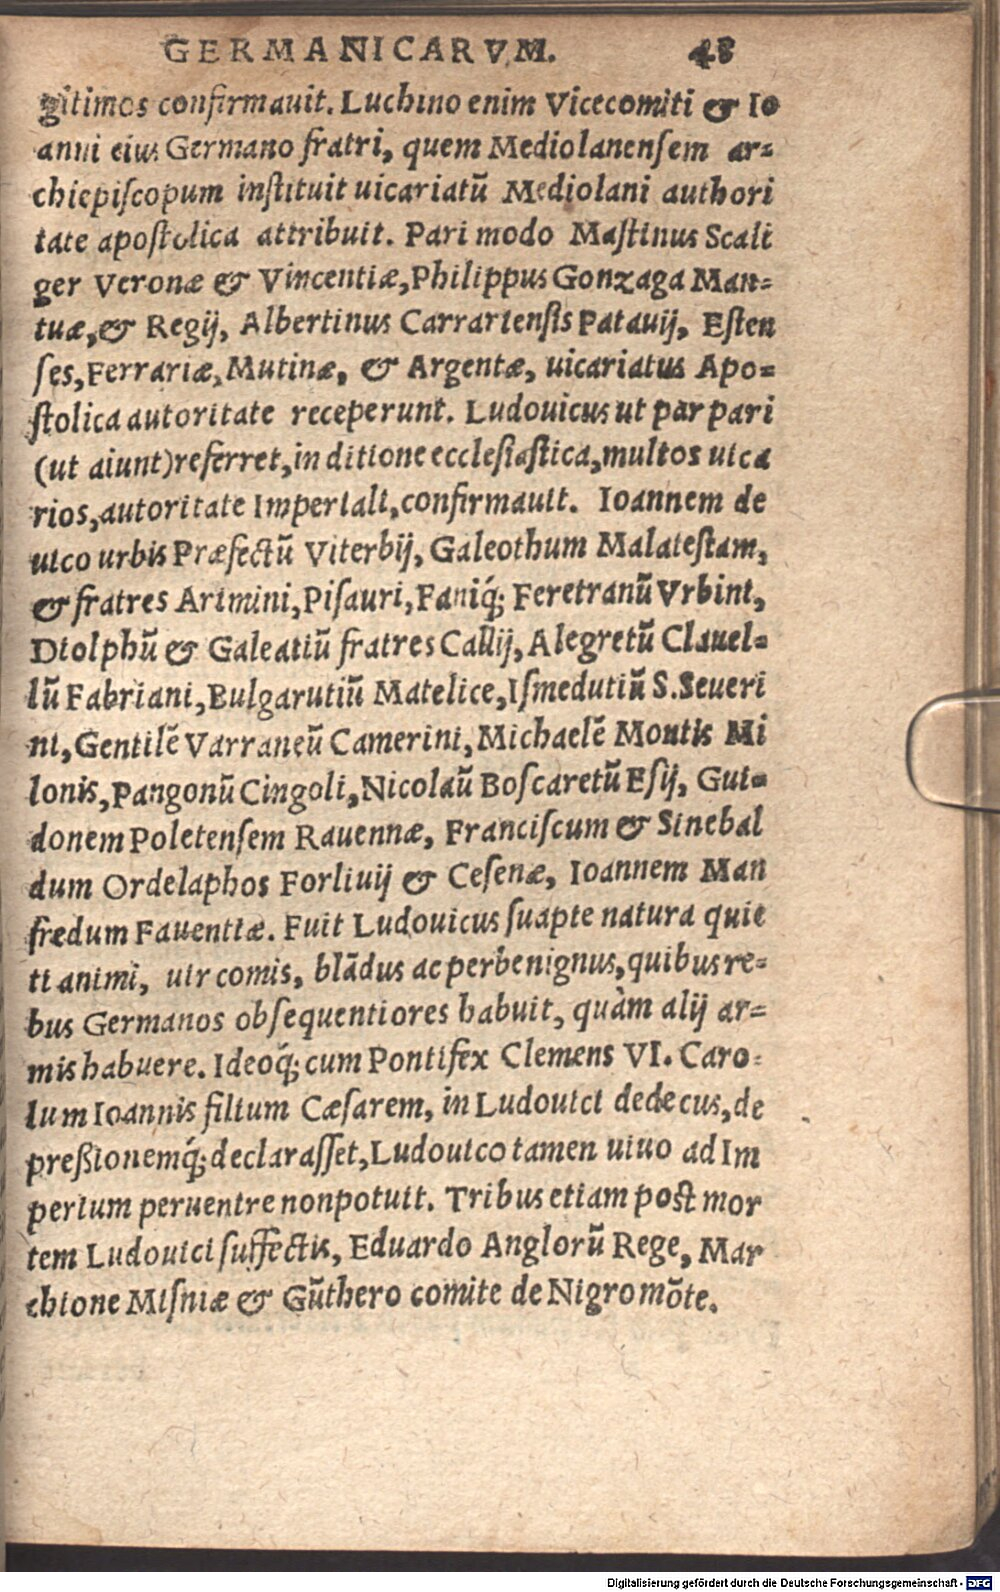 GERMANICARVM. 48
gitimos confirmauit. Luchino enim Vicecomiti & Io
anni eius Germano fratri, quem Mediolanensem ar-
chiepiscopum instituit uicariatũ Mediolani authori
tate apostolica attribuit. Pari modo Mastinus Scali
ger Veronæ & Vincentiæ, Philippus Gonzaga Man-
tuæ, & Regij, Albertinus Carrariensis Patauij, Esten
ses, Ferrariæ, Mutinæ, & Argentæ, uicariatus Apo-
stolica autoritate receperunt. Ludouicus ut par pari
(ut aiunt) referret, in ditione ecclesiastica, multos uica
rios, autoritate Imperiali, confirmauit. Ioannem de
uico urbis Præfectũ Viterbij, Galeothum Malatestam,
& fratres Arimini, Pisauri, Faniq́; Feretranũ Vrbini,
Diolphũ & Galeatiũ fratres Callij, Alegretũ Clauel-
lũ Fabriani, Bulgarutiũ Matelice, Ismedutiũ S. Seueri
ni, Gentilẽ Varraneũ Camerini, Michaelẽ Montis Mi
lonis, Pangonũ Cingoli, Nicolaũ Boscaretũ Esij, Gui-
donem Poletensem Rauennæ, Franciscum & Sinebal
dum Ordelaphos Forliuij & Cesenæ, Ioannem Man
fredum Fauentiæ. Fuit Ludouicus suapte natura quie
ti animi, uir comis, blãdus ac perbenignus, quibus re-
bus Germanos obsequentiores habuit, quàm alij ar-
mis habuere. Ideoq́; cum Pontifex Clemens VI. Caro-
lum Ioannis filium Cæsarem, in Ludouici dedecus, de
preßionemq́; declarasset, Ludouico tamen uiuo ad Im
perium peruenire non potuit. Tribus etiam post mor
tem Ludouici suffectis, Eduardo Anglorũ Rege, Mar
chione Misniæ & Gũthero comite de Nigromõte.
Digitalisierung gefördert durch die Deutsche Forschungsgemeinschaft - DFG